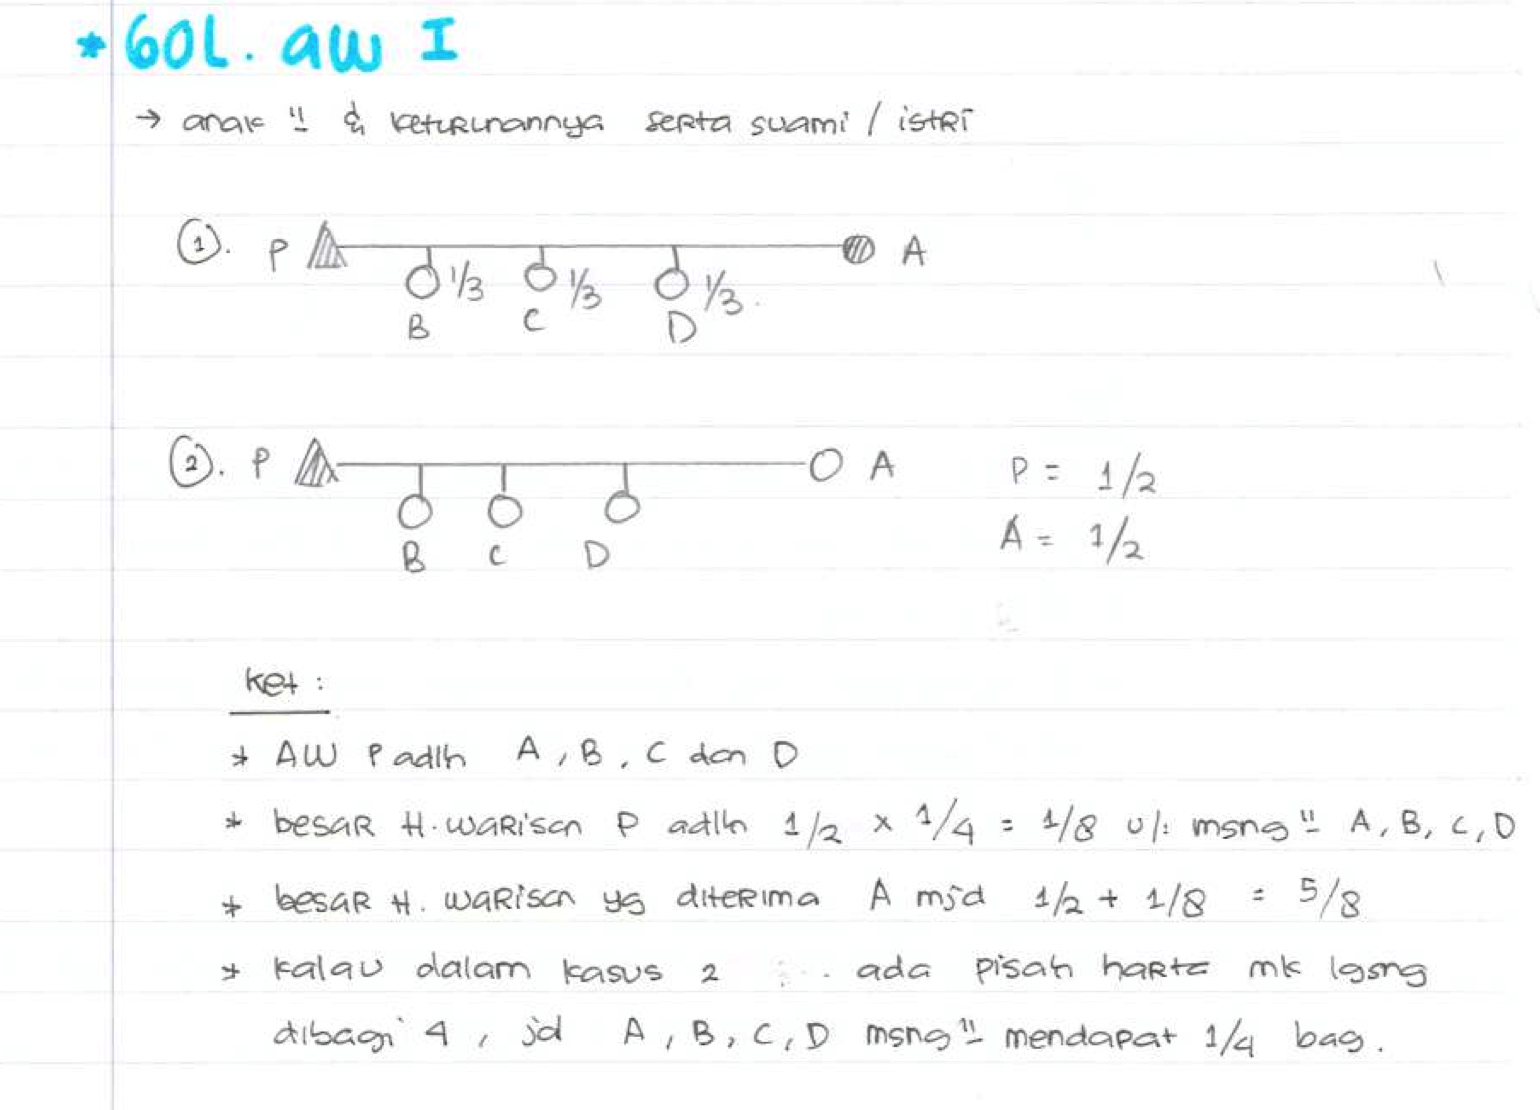 * GOL. aw I
→ anak " & keturunannya serta suami / istri
①. P A
1/3 1/3 1/3
B C D
②. P A P = 1/2
B C D A = 1/2
ket :
* AW P adlh A, B, C dan D
* besar H. warisan P adlh 1/2 x 1/4 = 1/8 u/: msng " A, B, C, D
* besar H. warisan yg diterima A mjd 1/2 + 1/8 = 5/8
* kalau dalam kasus 2 ada pisah harta mk lgsng
dibagi 4, jd A, B, C, D msng " mendapat 1/4 bag.